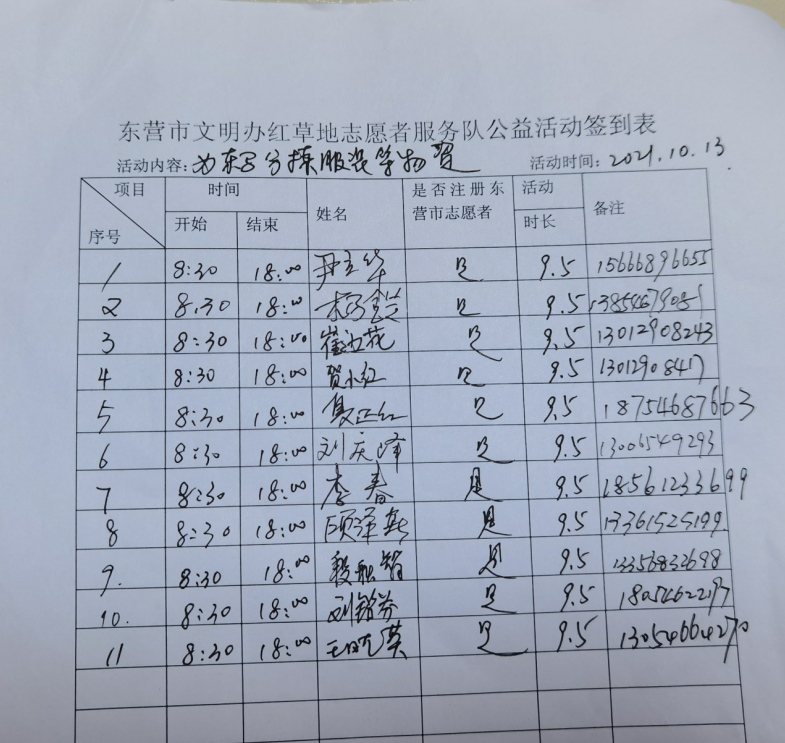 东营市文明办红草地志愿者服务队公益活动签到表
活动内容:为 分拣服装等物资 活动时间:2021.10.13.
项目 时间 姓名 是否注册东营市志愿者 活动时长 备注
序号 开始 结束
1 8:30 18:00 9.5 15666896655
2 8:30 18:00 是 9.5
3 8:30 18:00 崔 花 是 9.5 13012908243
4 8:30 18:00 贺小红 是 9.5
5 8:30 18:00 红 是 9.5 18754687663
6 8:30 18:00 刘庆泽 是 9.5 13006549293
7 8:30 18:00 李春 是 9.5 18561233699
8 8:30 18:00 顾泽 是 9.5 13361525199
9. 8:30 18:00 是 9.5 13356832698
10. 8:30 18:00 刘 芬 是 9.5
11 8:30 18:00 王 英 是 9.5 13054664270